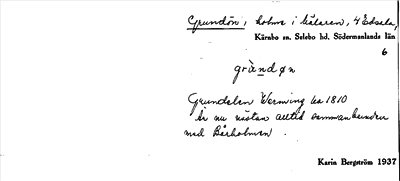 Grundön, holme i Mälaren, 4 Edsala,
Kärnbo sn. Selebo hd. Södermanlands län
6
grùndøn
Grundelen Werming ka 1810
Är nu nästan alltid sammanbunden
med Bårholmen.
Karin Bergström 1937